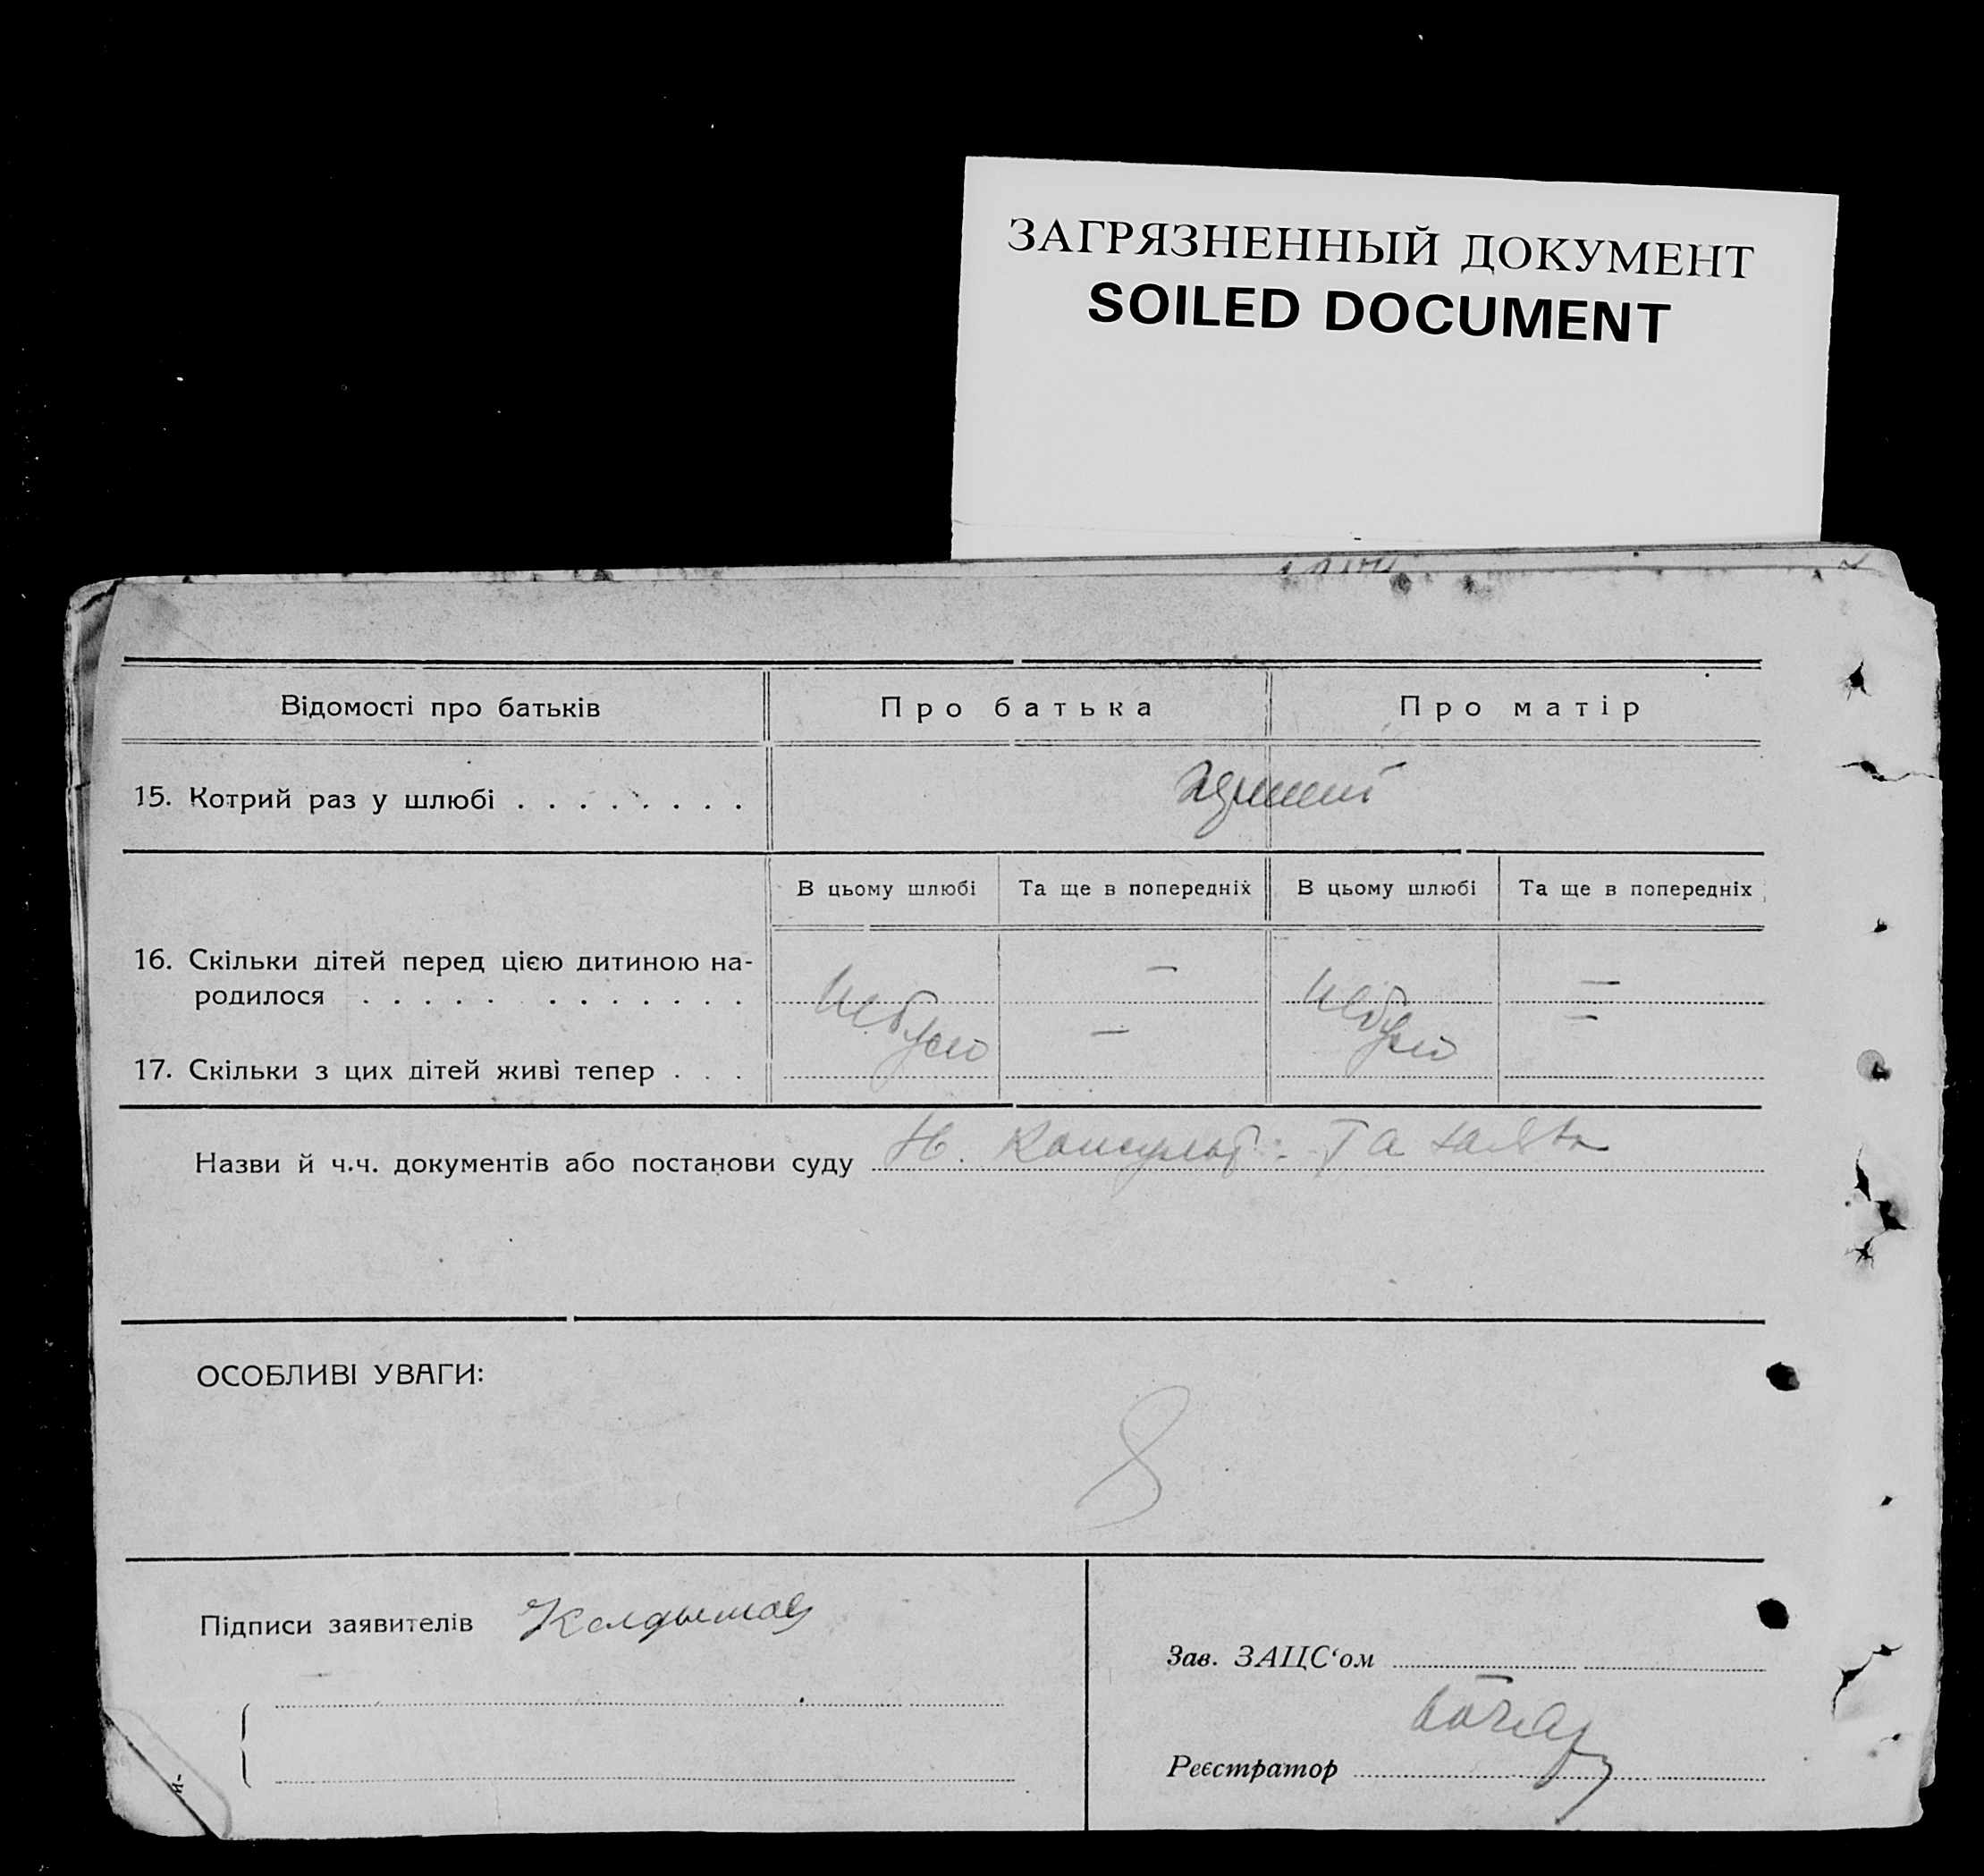 ЗАГРЯЗНЕННЫЙ ДОКУМЕНТ
SOILED DOCUMENT
Відомості про батьків Про батька Про матір
15. Котрий раз у шлюбі . . . . . . . . .
В цьому шлюбі Та ще в попередніх В цьому шлюбі Та ще в попередніх
16. Скільки дітей перед цією дитиною на-
родилося . . . . . . . . . . . . — —
не було — не було —
17. Скільки з цих дітей живі тепер . . .
Назви й ч.ч. документів або постанови суду Консульт: Та заява
ОСОБЛИВІ УВАГИ:
8
Підписи заявителів
Зав. ЗАЦС‘ом
Реєстратор